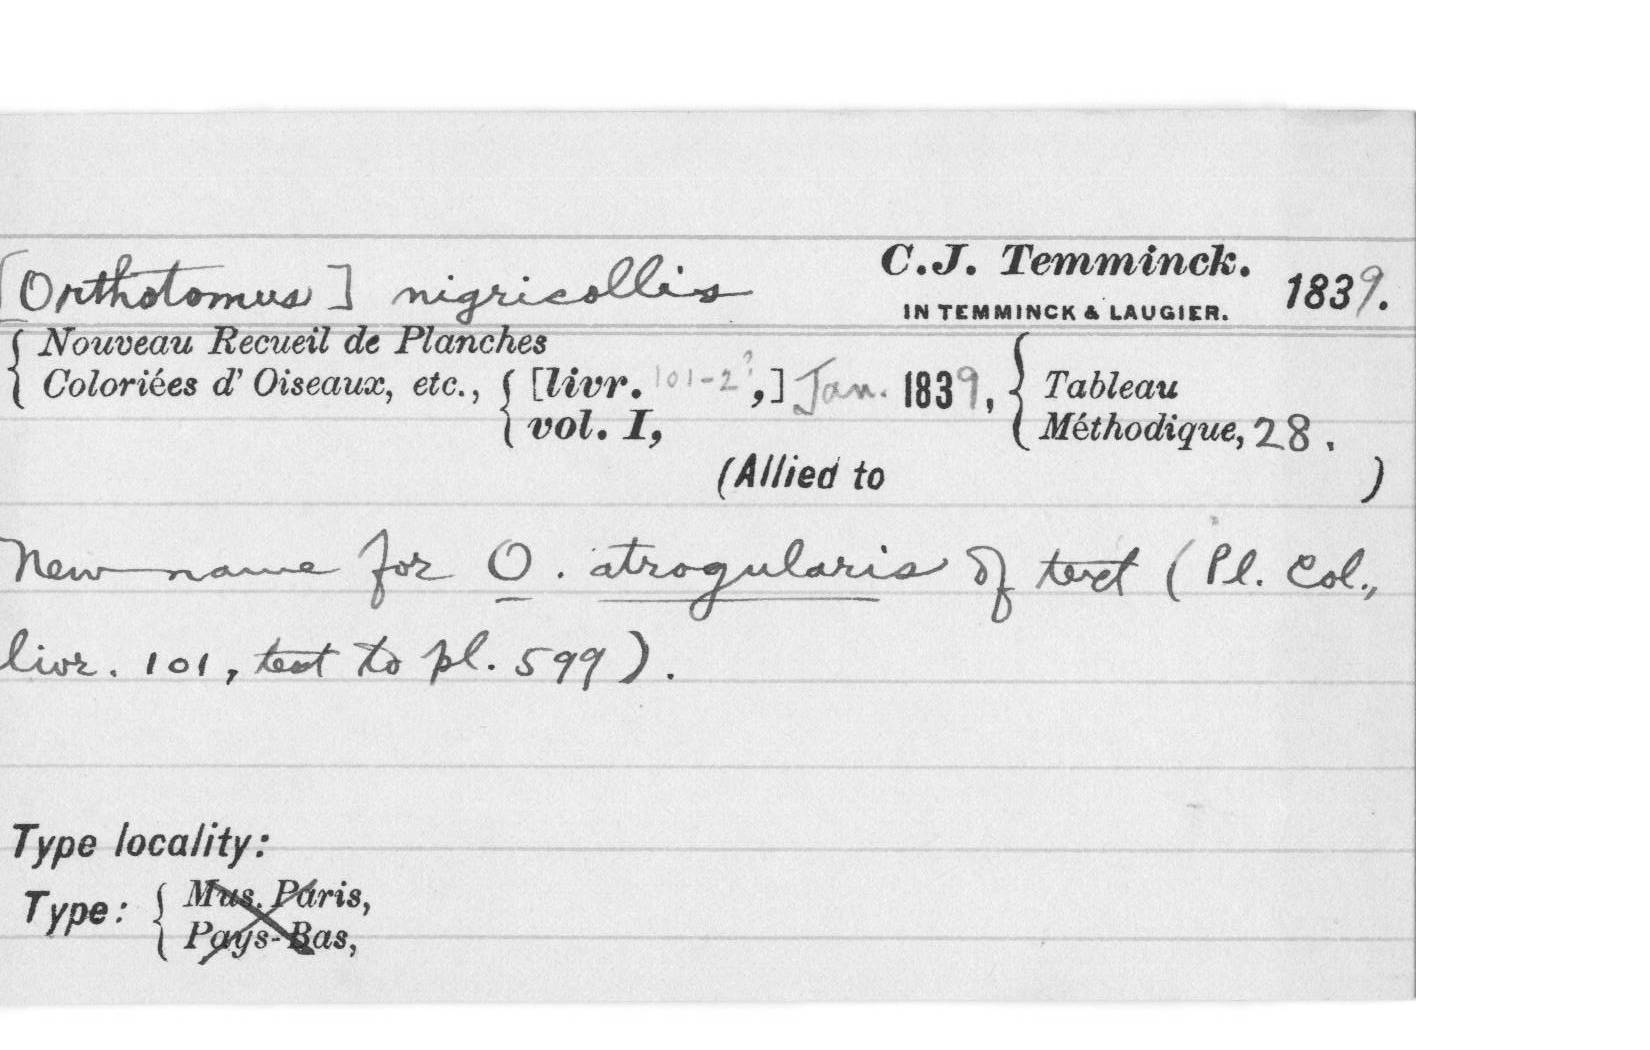 [Orthotomus] nigricollis C.J. Temminck. 1839.
IN TEMMINCK & LAUGIER.
Nouveau Recueil de Planches
Coloriées d' Oiseaux, etc., [livr. 101-2?,] Jan. 1839, Tableau
vol. I, Méthodique, 28.
(Allied to )
New name for O. atrogularis of text (Pl. Col.,
livr. 101, text to pl. 599).
Type locality:
Type: Mus. Paris,
Pays-Bas,